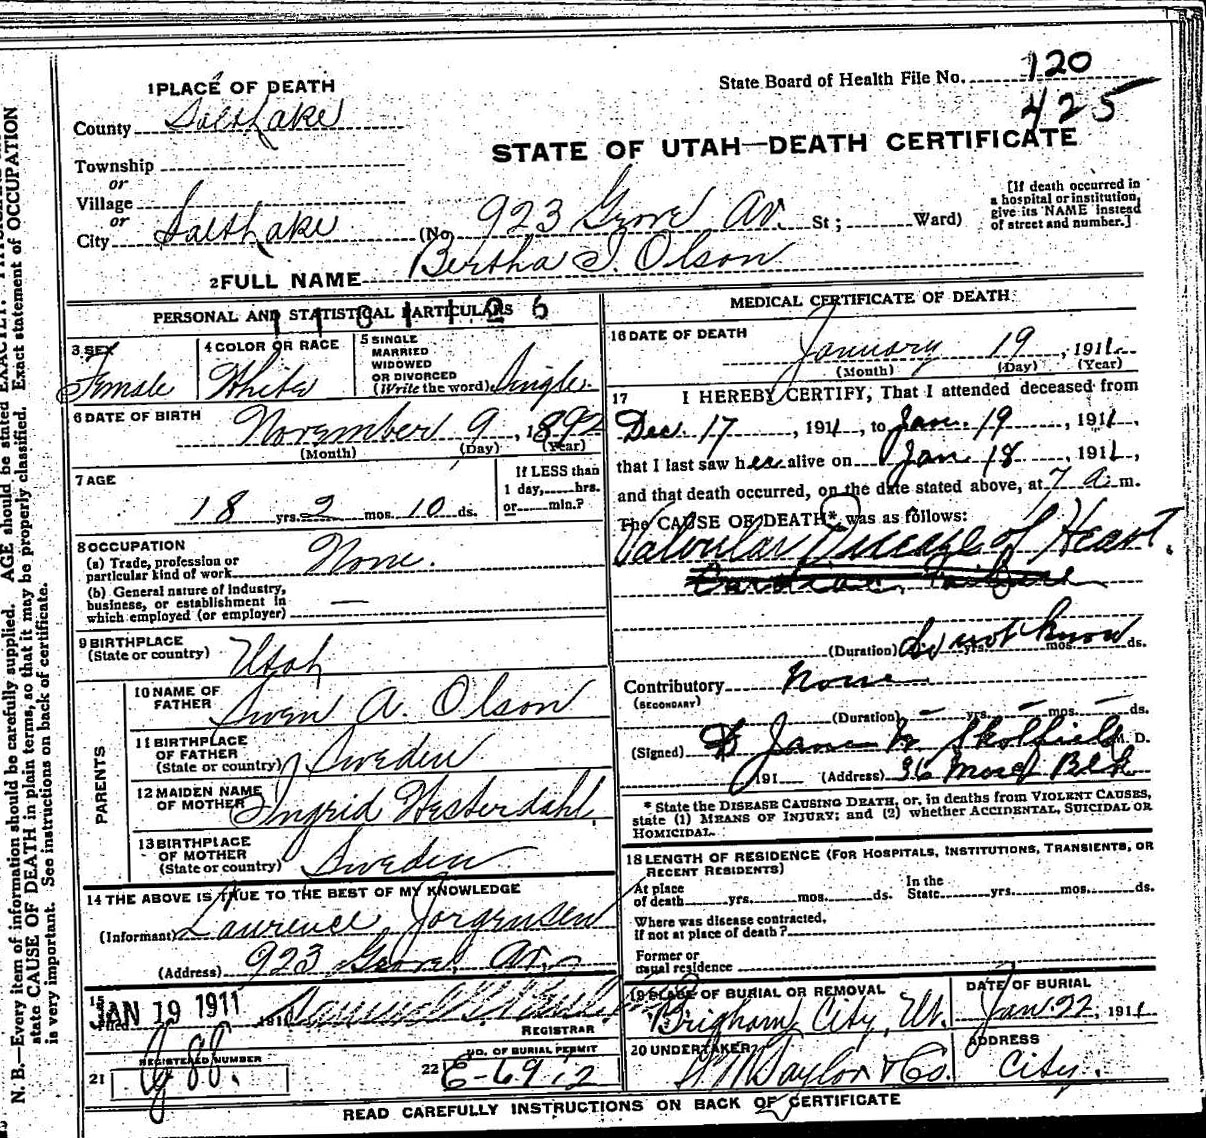 1 PLACE OF DEATH
State Board of Health File No. 120
425
County Salt Lake
STATE OF UTAH—DEATH CERTIFICATE
Township
or
Village
or
City Salt Lake (No. 923 Grove Av. St; Ward)
[If death occurred in
a hospital or institution,
give its NAME instead
of street and number.]
2 FULL NAME Bertha S. Olson
PERSONAL AND STATISTICAL PARTICULARS
3 SEX Female
4 COLOR OR RACE White
5 SINGLE
MARRIED
WIDOWED
OR DIVORCED
(Write the word) Single
6 DATE OF BIRTH November 9, 1892
(Month) (Day) (Year)
7 AGE
18 yrs. 2 mos. 10 ds.
If LESS than
1 day, hrs.
or min.?
8 OCCUPATION
(a) Trade, profession or
particular kind of work None.
(b) General nature of industry,
business, or establishment in
which employed (or employer) —
9 BIRTHPLACE
(State or country) Utah
PARENTS
10 NAME OF
FATHER Swen A. Olson
11 BIRTHPLACE
OF FATHER
(State or country) Sweden
12 MAIDEN NAME
OF MOTHER Ingrid Westerdahl.
13 BIRTHPLACE
OF MOTHER
(State or country) Sweden
14 THE ABOVE IS TRUE TO THE BEST OF MY KNOWLEDGE
(Informant) Laurence Jorgensen
(Address) 923 Grove Av.
15
Filed JAN 19 1911 191
REGISTRAR
REGISTERED NUMBER
21
NO. OF BURIAL PERMIT
22 E-6912
MEDICAL CERTIFICATE OF DEATH
16 DATE OF DEATH
January 19, 1911.
(Month) (Day) (Year)
17 I HEREBY CERTIFY, That I attended deceased from
Dec. 17, 1911, to Jan. 19, 1911,
that I last saw her alive on Jan 18, 1911,
and that death occurred, on the date stated above, at 7 a. m.
The CAUSE OF DEATH* was as follows:
Valvular Disease of Heart.
Cardiac Failure
(Duration) do not know yrs. mos. ds.
Contributory None
(SECONDARY)
(Duration) – yrs. – mos. – ds.
(Signed) Jane W. Skolfield M. D.
191 (Address) 36 Blk
* State the DISEASE CAUSING DEATH, or, in deaths from VIOLENT CAUSES,
state (1) MEANS OF INJURY; and (2) whether ACCIDENTAL, SUICIDAL OR
HOMICIDAL.
18 LENGTH OF RESIDENCE (FOR HOSPITALS, INSTITUTIONS, TRANSIENTS, OR
RECENT RESIDENTS)
At place
of death yrs. mos. ds.
In the
State yrs. mos. ds.
Where was disease contracted,
if not at place of death?
Former or
usual residence
19 PLACE OF BURIAL OR REMOVAL
Brigham City, Ut.
DATE OF BURIAL
Jan. 22, 1911
20 UNDERTAKER
Taylor & Co.
ADDRESS
City.
READ CAREFULLY INSTRUCTIONS ON BACK OF CERTIFICATE
N. B.—Every item of information should be carefully supplied. AGE should be stated EXACTLY.
state CAUSE OF DEATH in plain terms, so that it may be properly classified. Exact statement of OCCUPATION
is very important. See instructions on back of certificate.